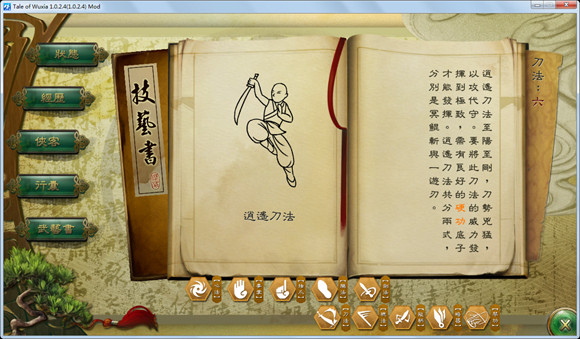 Tale of Wuxia 1.0.2.4(1.0.2.4) Mod
狀態
經歷
俠客
行囊
武藝書
技藝書
逍遙刀法
刀法：六
逍遙刀法至陽至剛，刀勢兇猛，
以攻代守。要將此刀法的威力發
揮到極致，需有良好的硬功底子
才能發揮。逍遙刀法共分兩式，
分別是冥鯤斬與一遊刃。